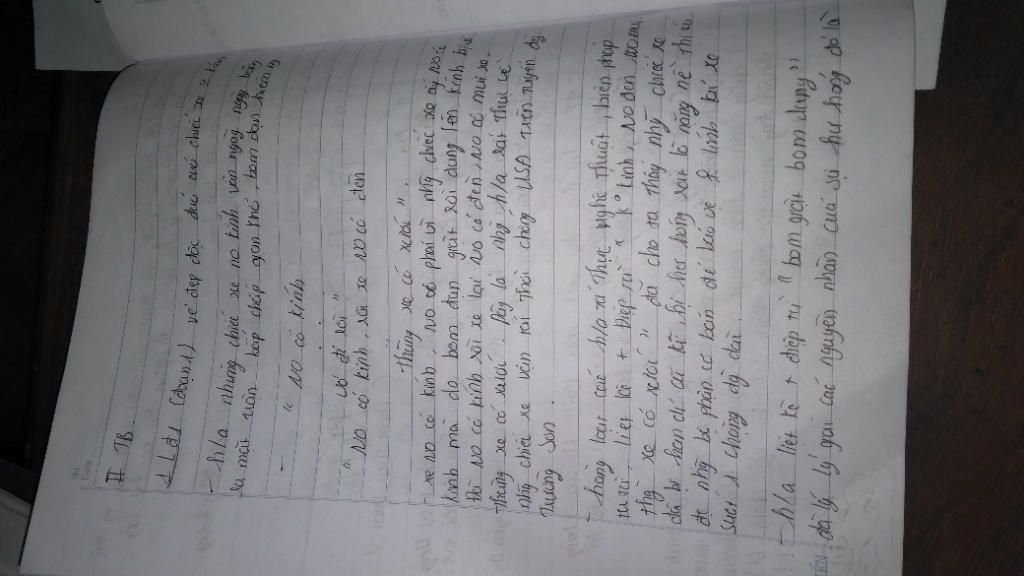 II TB.
1 Lđ1 (đoạn1) vẻ đẹp độc đáo cuả chiếc xe 0 kính
- h/a những chiếc xe no kính vẫn ngày ngày băng
ra mặt trận bấp chấp gian khổ, bom đạn hiểm ng
- " no có kính
vỡ đi rồi"
" no có kính, rồi xe no có đèn
thùng xe có xước".
- xe no có kính no có phải vì nhg chiếc xe ấy no có
kính mà do bom đạn giật rồi dung lên kính bị vỡ
Rồi no có kính rồi xe lại no có đèn no có mui xe
thùng xe có xước. Đây là nhg h/a rất thực về
nhg chiếc xe vận tải thời chống USA trên tuyến đg
Trường Sơn.
- hàng loạt các h/a tả thực, nghệ thuật, biện pháp
tu từ, liệt kê + điệp từ " ko kính, no đèn no mui
thg xe có xước" đã cho ta thấy nhg chiếc xe
đã bị hạn chế cả tệ, bị hư hỏng rất tệ nặng nề thiếu
đi nhg bộ phận cơ bản để bảo vệ ng lính lái xe
suốt 1 chặng đg dài
- h/a liệt kê + điệp từ " bom giật bom dung"
đã lý lý giải các nguyên nhân cuả sự hư hỏng đó là